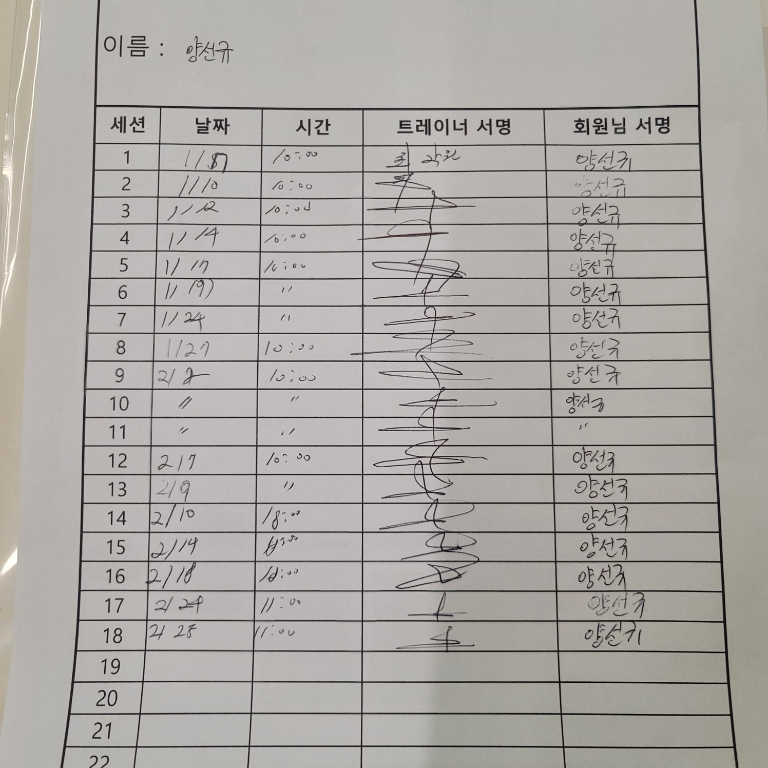 이름 : 양선규
세션 날짜 시간 트레이너 서명 회원님 서명
1 10:00 양선규
2 1/10 10:00 양선규
3 1/12 10:00 양선규
4 1/14 10:00 양선규
5 1/17 10:00 양선규
6 1/19 〃 양선규
7 1/24 〃 양선규
8 1/27 10:00 양선규
9 10:00 양선규
10 〃 〃 양선규
11 〃 〃 〃
12 2/7 10:00 양선규
13 2/9 〃 양선규
14 2/10 양선규
15 2/14 양선규
16 2/18 양선규
17 2/24 11:00 양선규
18 2/28 11:00 양선규
19
20
21
22